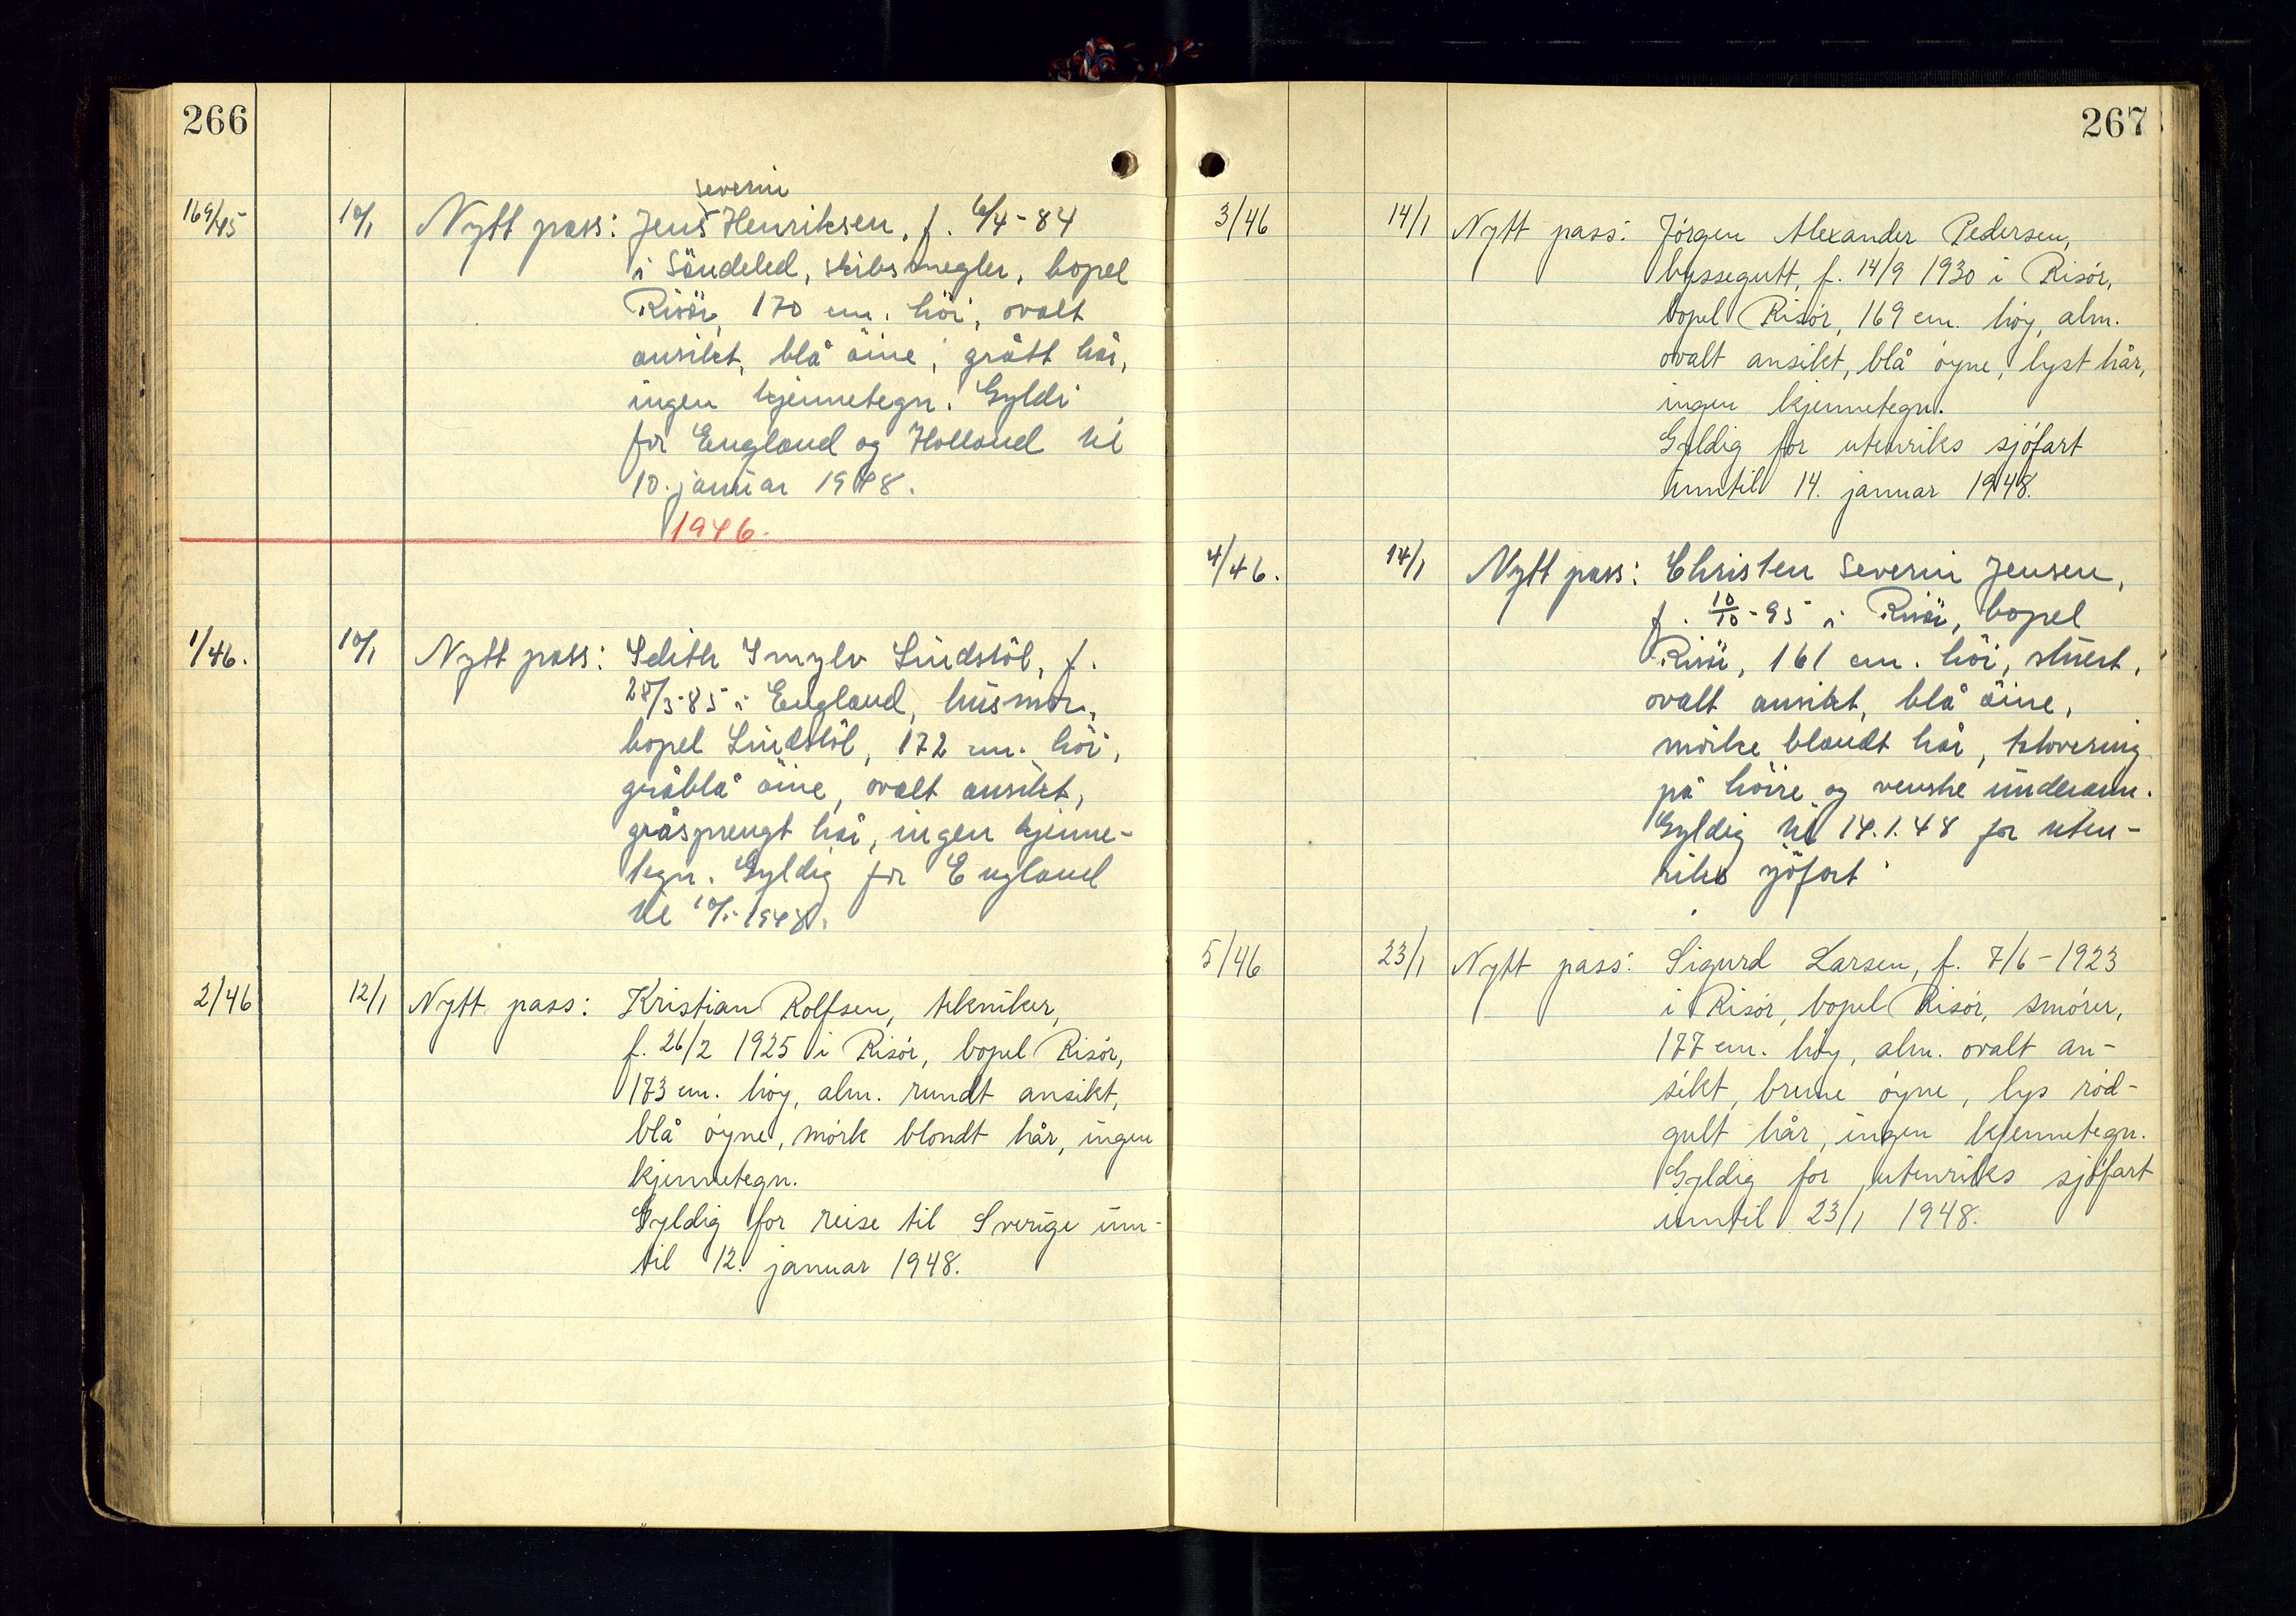 266
severin
169/45 10/1 Nytt pass: Jens Henriksen, f. 6/4-84
i Söndeled, skibsmegler, bopel
Risör, 170 cm. höi, ovalt
ansikt, blå öine, grått hår,
ingen kjennetegn. Gyldi
for England og Holland til
10. januar 1948.
1946.
1/46. 10/1 Nytt pass: Edith Lindstöl, f.
28/3-85 i England, husmor,
bopel Lindstöl, 172 cm. höi,
gråblå öine, ovalt ansikt,
gråsprengt hår, ingen kjenne-
tegn. Gyldig for England
til 10/1-1948.
2/46 12/1 Nytt pass: Kristian Rolfsen, tekniker,
f. 26/2 1925 i Risór, bopel Risór,
173 cm. hóy, alm. rundt ansikt,
blå óyne, mórk blondt hår, ingen
kjennetegn.
Gyldig for reise til Sverige inn-
til 12. januar 1948.
267
3/46 14/1 Nytt pass: Jórgen Alexander Pedersen,
byssegutt, f. 14/9 1930 i Risór,
bopel Risór, 169 cm. hóy, alm.
ovalt ansikt, blå óyne, lyst hår,
ingen kjennetegn.
Gyldig for utenriks sjófart
inntil 14. januar 1948.
4/46. 14/1 Nytt pass: Christen Severin Jensen,
f. 10/10-95 i Risör, bopel
Risör, 161 cm. höi, stuert,
ovalt ansikt, blå öine,
mörke blondt hår, tatovering
på höire og venstre underarm.
Gyldig til 14.1.48 for uten-
riks sjöfart
5/46 23/1 Nytt pass: Sigurd Larsen, f. 7/6-1923
i Risór, bopel Risór, smórer,
177 cm. hóy, alm. ovalt an-
sikt, brune óyne, lys ród-
gult hår, ingen kjennetegn.
Gyldig for utenriks sjófart
inntil 23/1 1948.